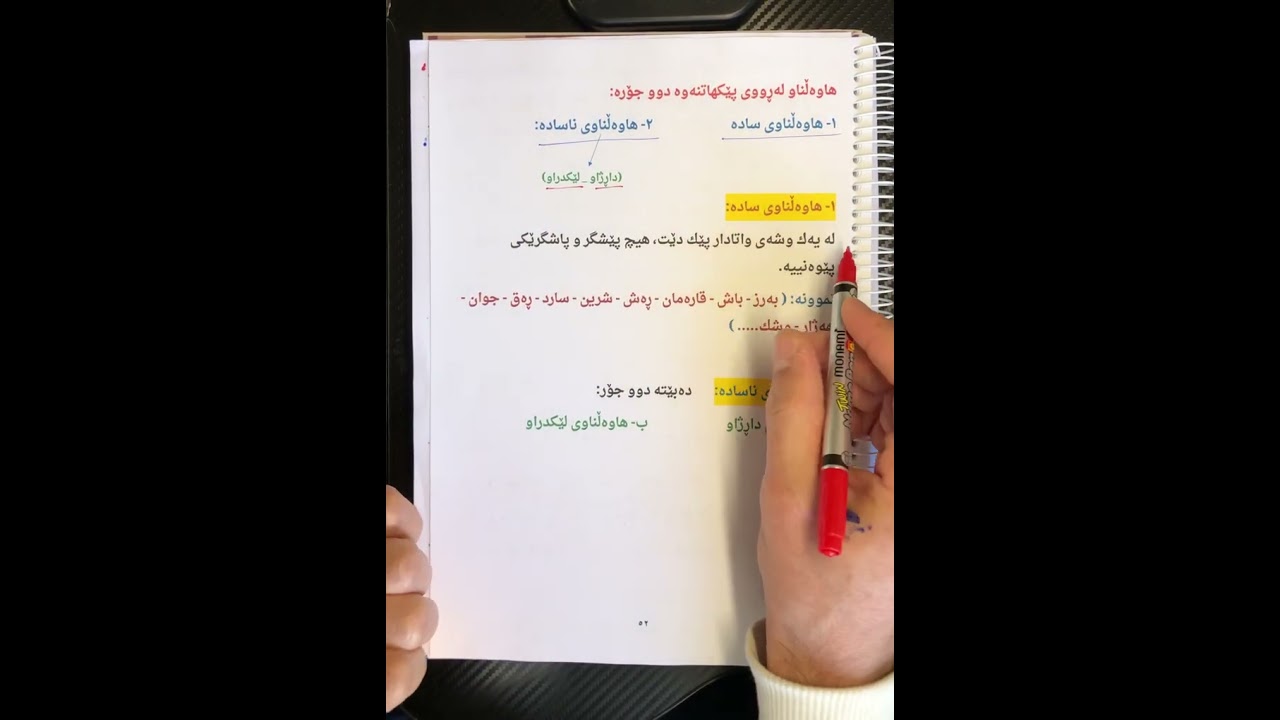 هاوەڵناو لەڕووی پێکهاتنەوە دوو جۆرە:
١- هاوەڵناوی سادە ٢- هاوەڵناوی ناسادە:
(داڕژاو _ لێکدراو)
١- هاوەڵناوی سادە:
لە یەك وشەی واتادار پێك دێت، هیچ پێشگر و پاشگرێکی
پێوەنییە.
نموونە: ( بەرز - باش - قارەمان - ڕەش - شرین - سارد - ڕەق - جوان -
هەژار - وشك..... )
ناسادە: دەبێتە دوو جۆر:
داڕژاو ب- هاوەڵناوی لێکدراو
٥٢
MONAMI